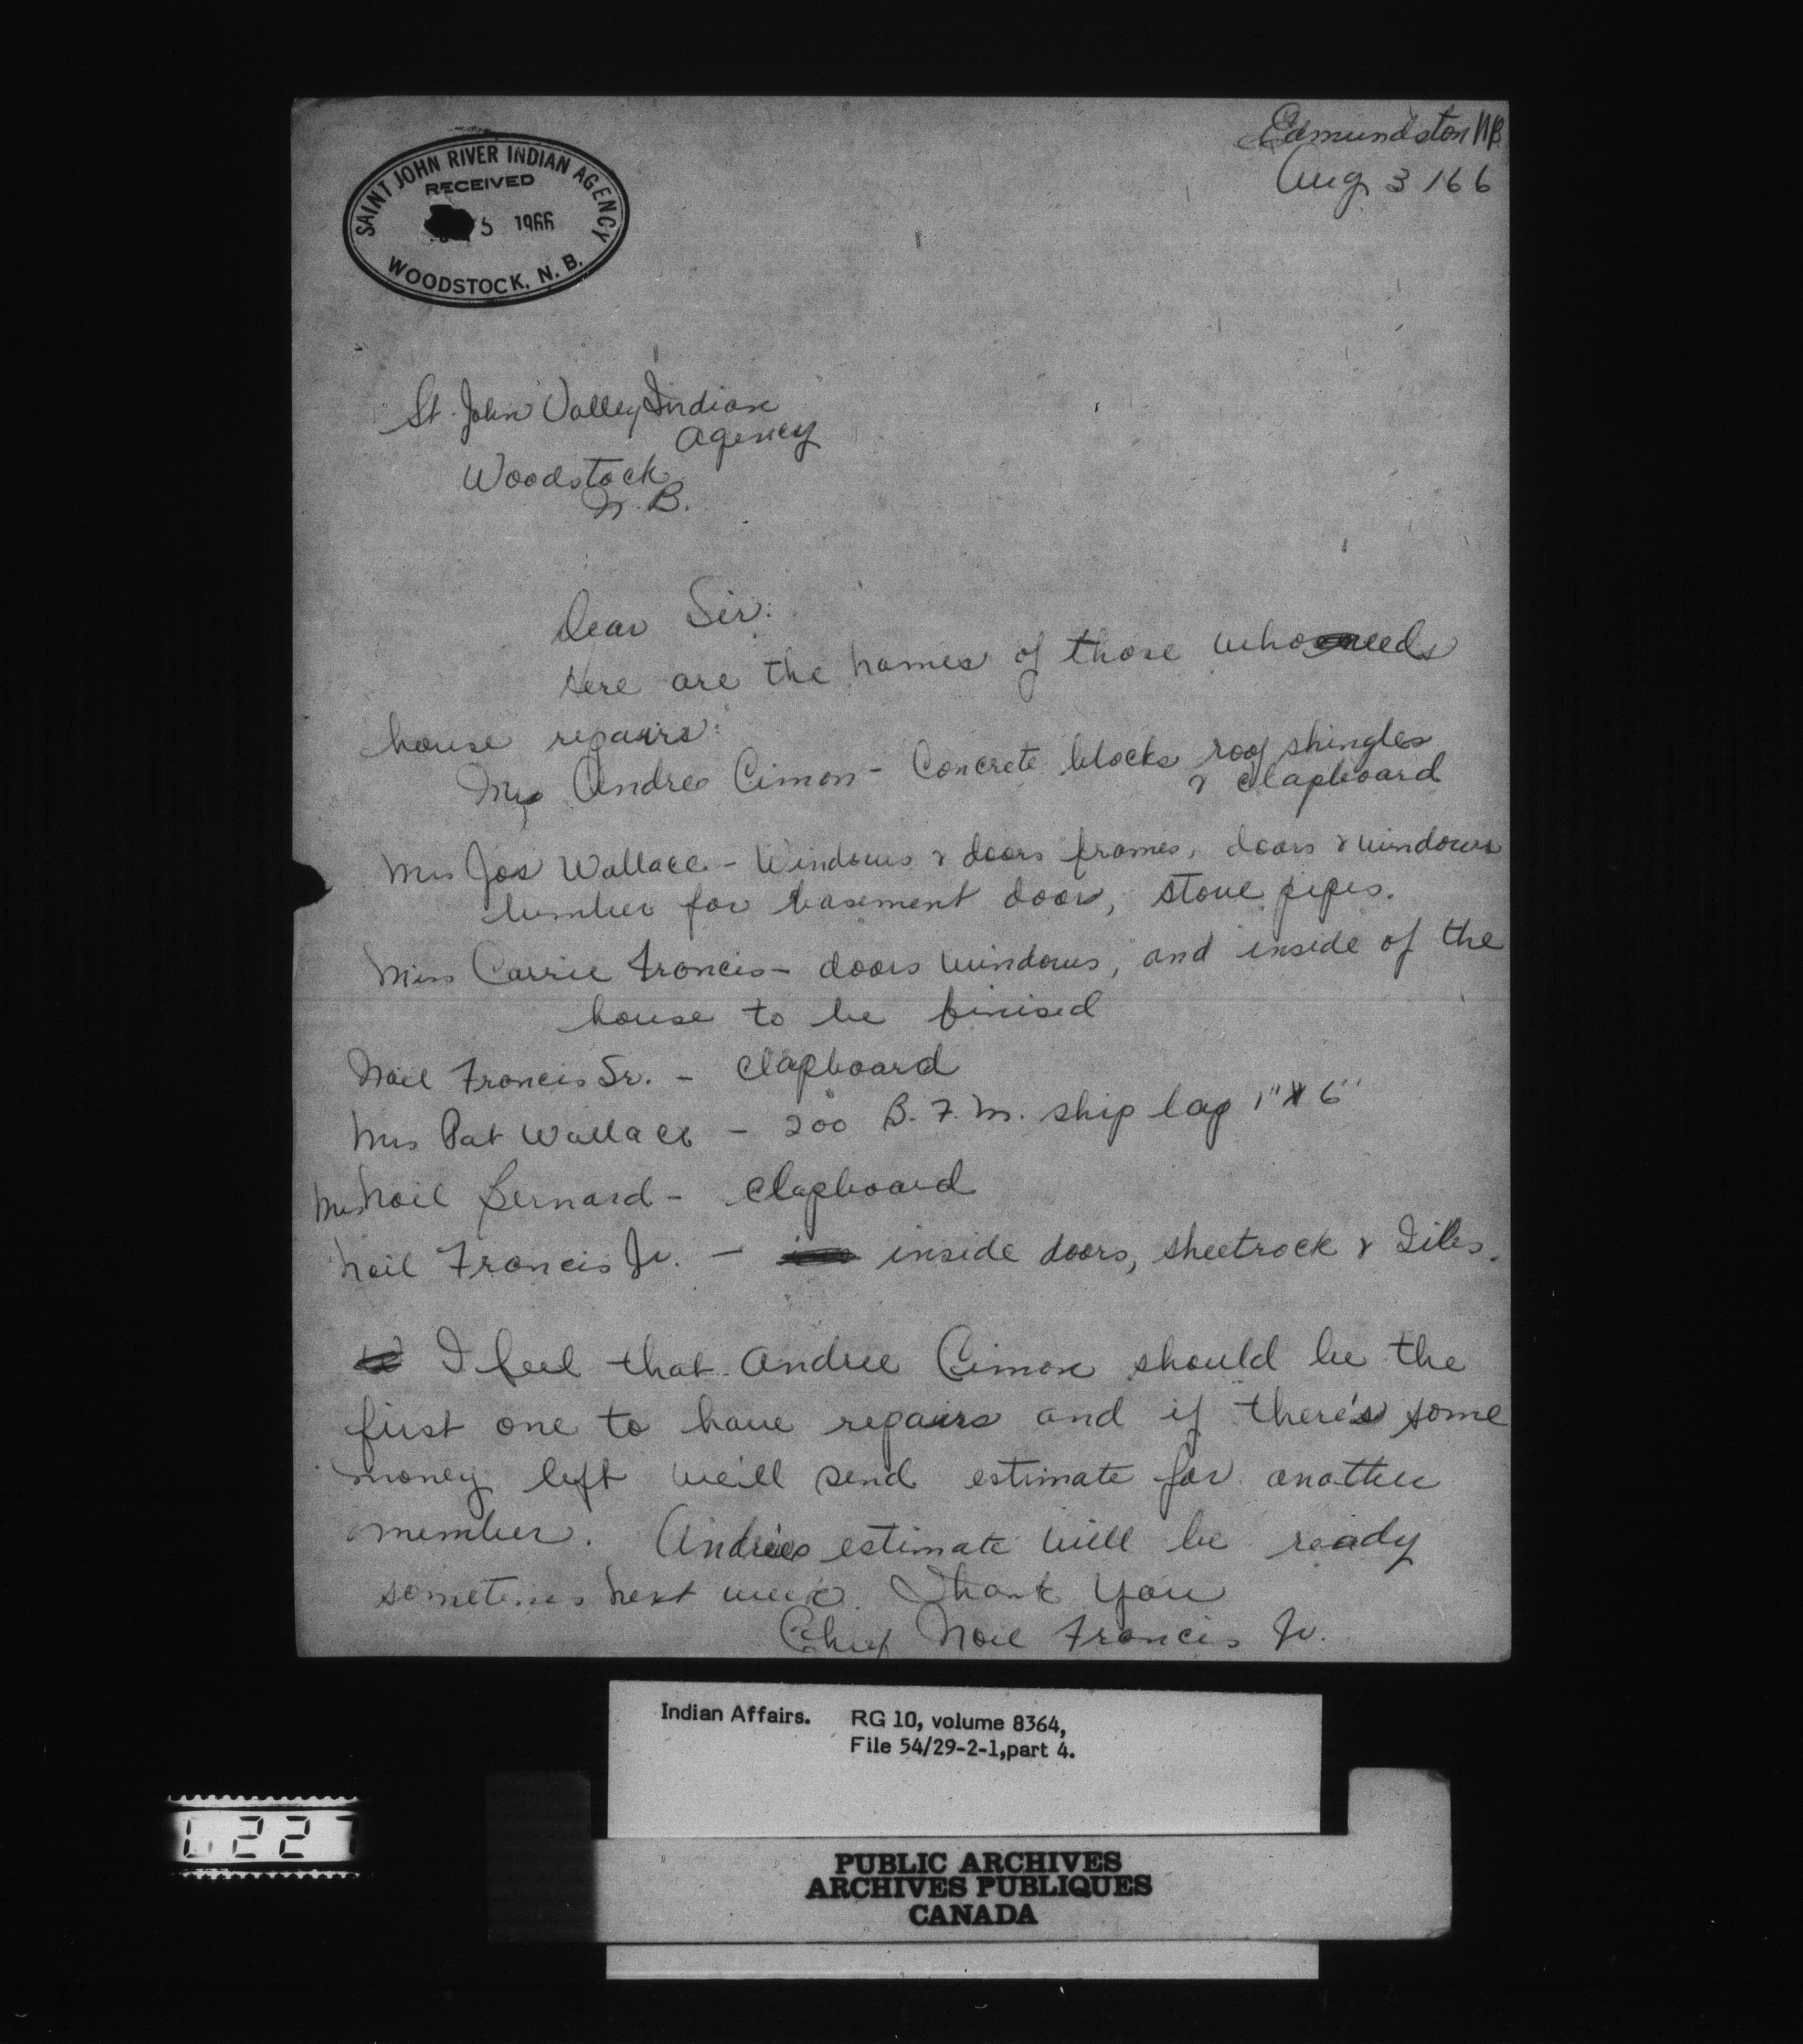 Edmundston NB
Aug 3 /66
SAINT JOHN RIVER INDIAN AGENCY
RECEIVED
5 1966
WOODSTOCK, N. B.
St. John Valley Indian
Agency
Woodstock
N. B.
Dear Sir:
Here are the names of those who needs
house repairs:
Mrs Andree Cimon - Concrete blocks roof shingles
& clapboard
Mrs Jos Wallace - Windows & doors frames, doors & windows
lumber for basement door, stove pipes.
Miss Carrie Francis - doors windows, and inside of the
house to be finised
Noil Francis Sr. - Clapboard
Mrs Pat Wallace - 200 B. F. M. ship lap 1" X 6"
Mrs Noil Bernard - Clapboard
Noil Francis Jr. - inside doors, sheetrock & Tiles.
I feel that Andree Cimon should be the
first one to have repairs and if there's some
money left we'll send estimate for another
member. Andree's estimate will be ready
sometimes next week. Thank You
Chief Noil Francis Jr.
Indian Affairs. RG 10, volume 8364,
File 54/29-2-1, part 4.
227
PUBLIC ARCHIVES
ARCHIVES PUBLIQUES
CANADA